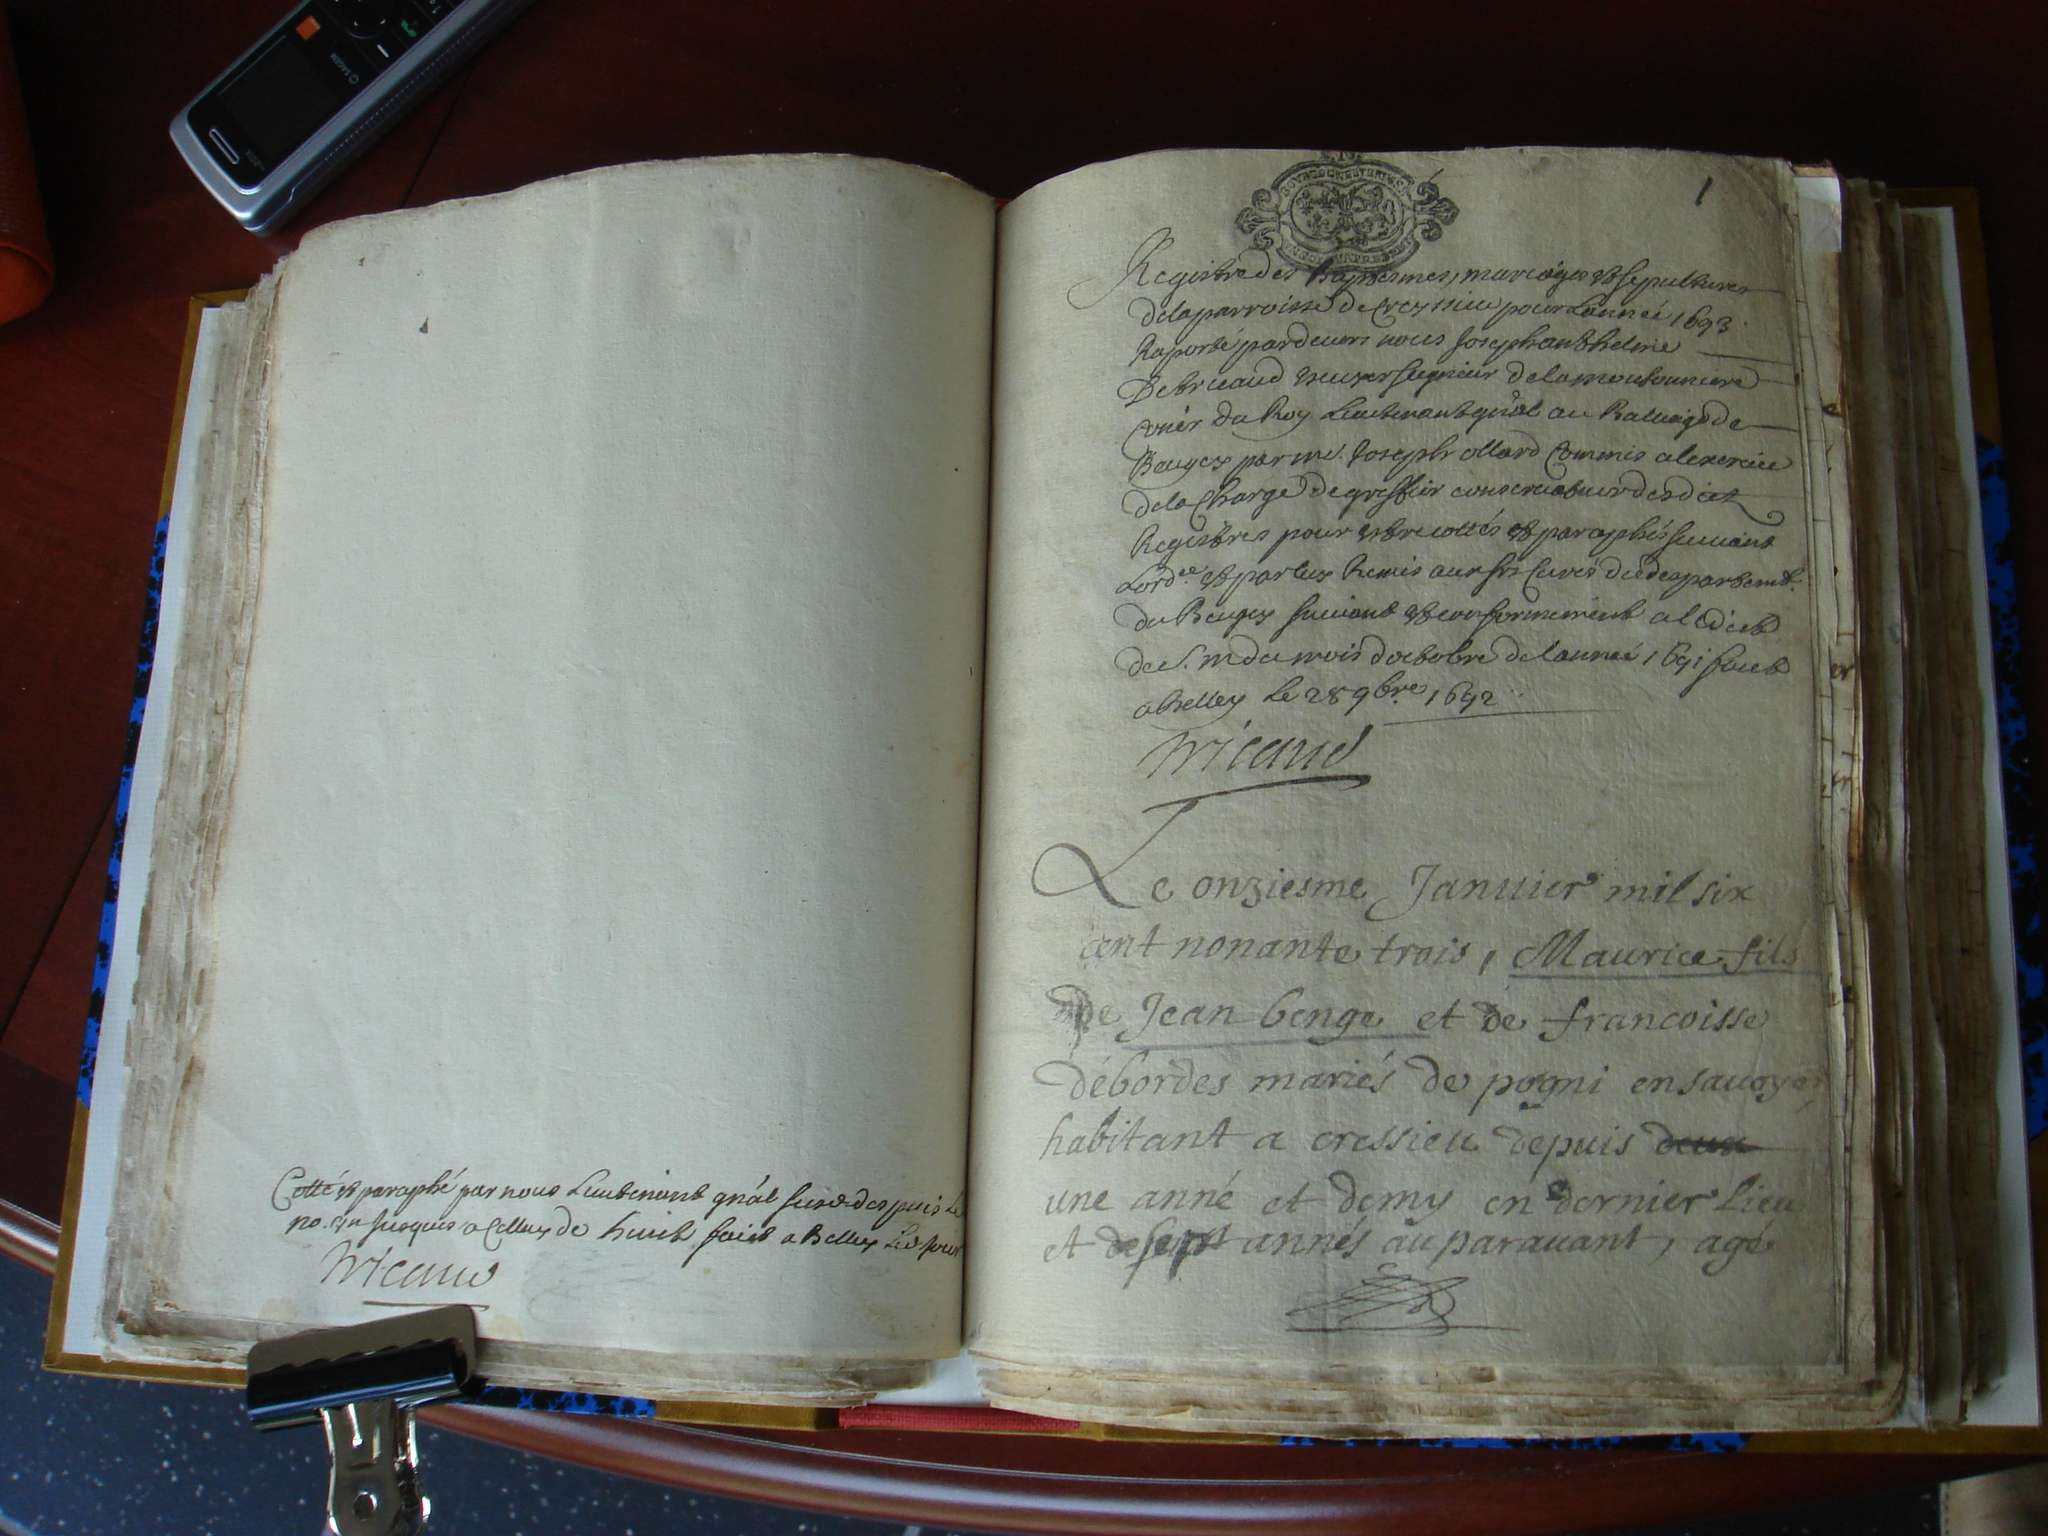 SAGEM
Cotté et paraphé par nous Lieutenant gnal susd. despuis le
no. un jusques a Celluy de huict faict a Belley led jour
Tricaud
1
Registre des Baptesmes, mariages et sepultures
de la parroisse de Creyssieu pour Lanneé 1693
Raporté pardevers nous Joseph anthelme
De tricaud seigneur de la
du Roy Lieutenant gnal au Balliage de
Beugey par me. Joseph ollard Commis alexercice
de la Charge de greffier conservateur desdicts
Registres pour estre cottés et paraphés suivant
Lordce. et par luy Remis aux srs Curés du despartemt.
du Beugey suivant et conformement a l'edict
de s. m du mois doctobre de lanneé 1691 faict
a belley Le 28 9bre. 1692
Tricaud
Le onziesme Januier mil six
cent nonante trois, Maurice fils
de Jean benge et de francoisse
débordes mariés de pogni en sauoye,
habitant a cressieu depuis deux
une anné et demy en dernier lieu
et de sept annés au parauant, agé